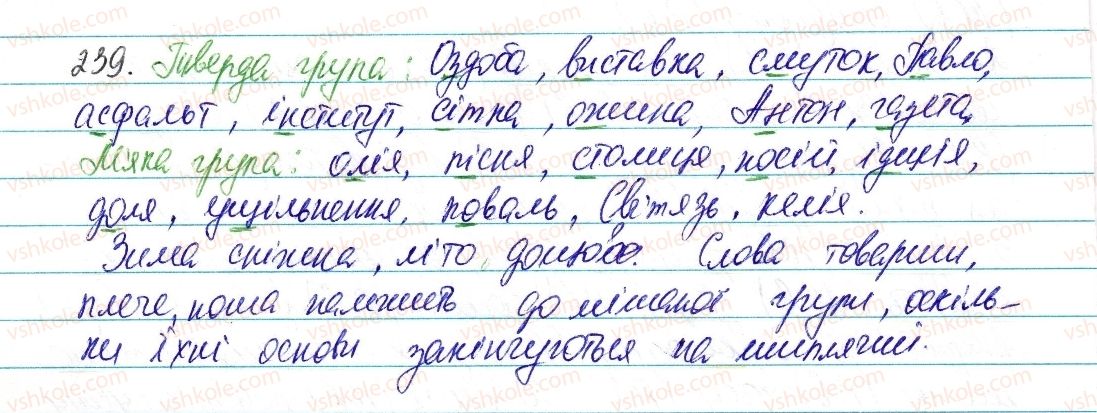 239. Тверда група: Оздоба, виставка, смуток, Павло,
асфальт, інститут, сітка, ожина, Антон, газета.
М'яка група: олія, пісня, столиця, носій, ідилія,
доля, ущільнення, коваль, Світязь, келія.
Зима сніжна, літо дощове. Слова товариш,
плече, ноша належить до мішаної групи, оскіль-
ки їхні основи закінчуються на шиплячий.